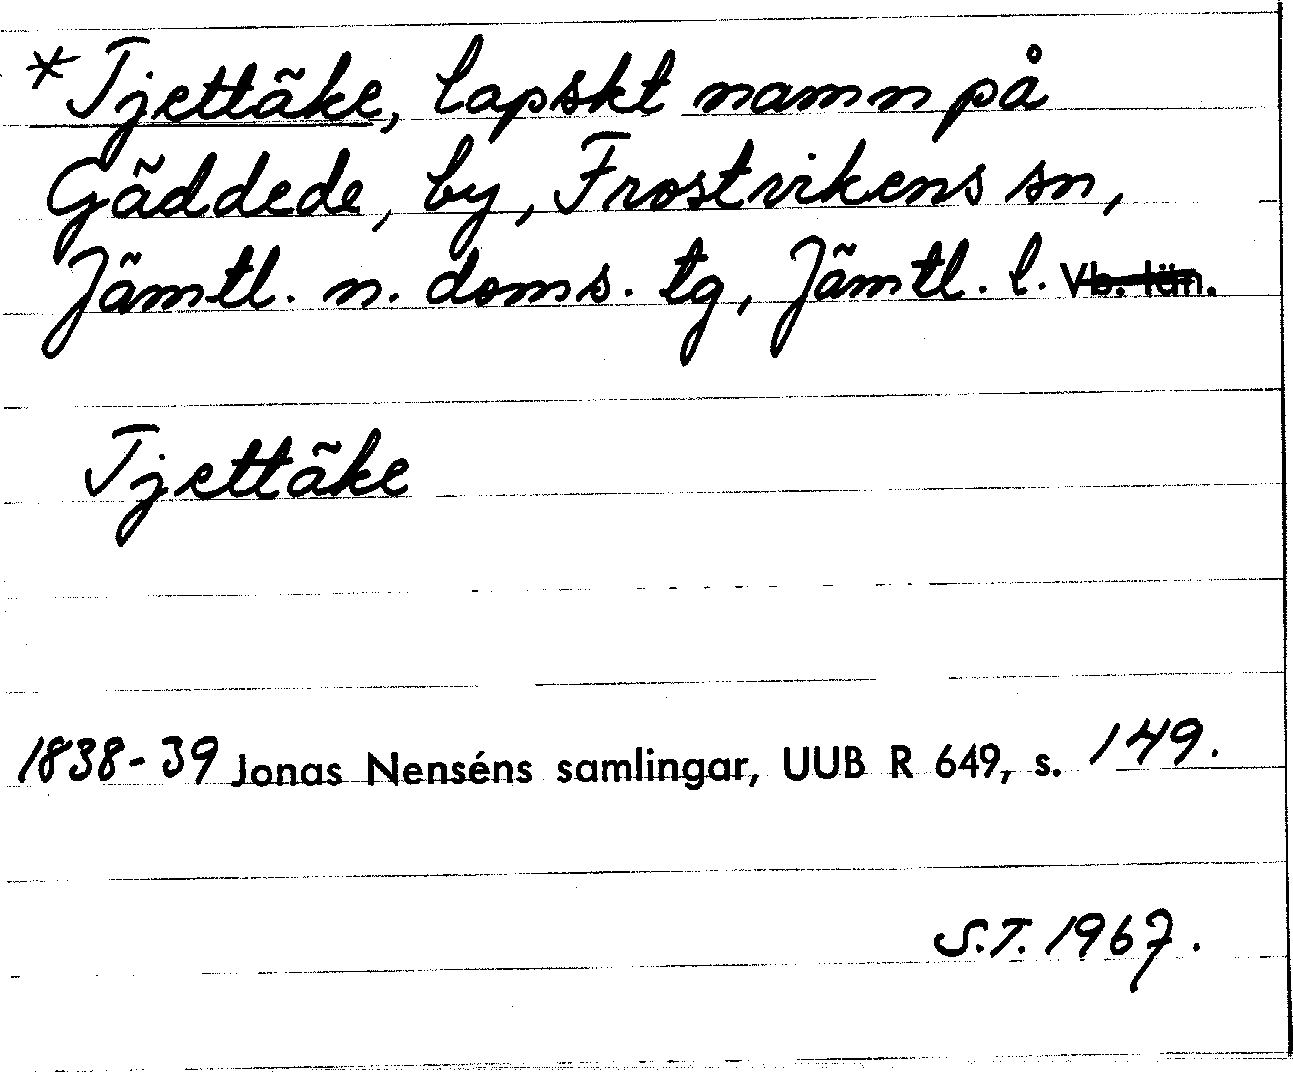 *Tjettäke, lapskt namn på
Gäddede, by, Frostvikens sn,
Jämtl. n. doms. tg, Jämtl. l. Vb. län.
Tjettäke
1838-39 Jonas Nenséns samlingar, UUB R 649, s. 149.
S.T. 1967.